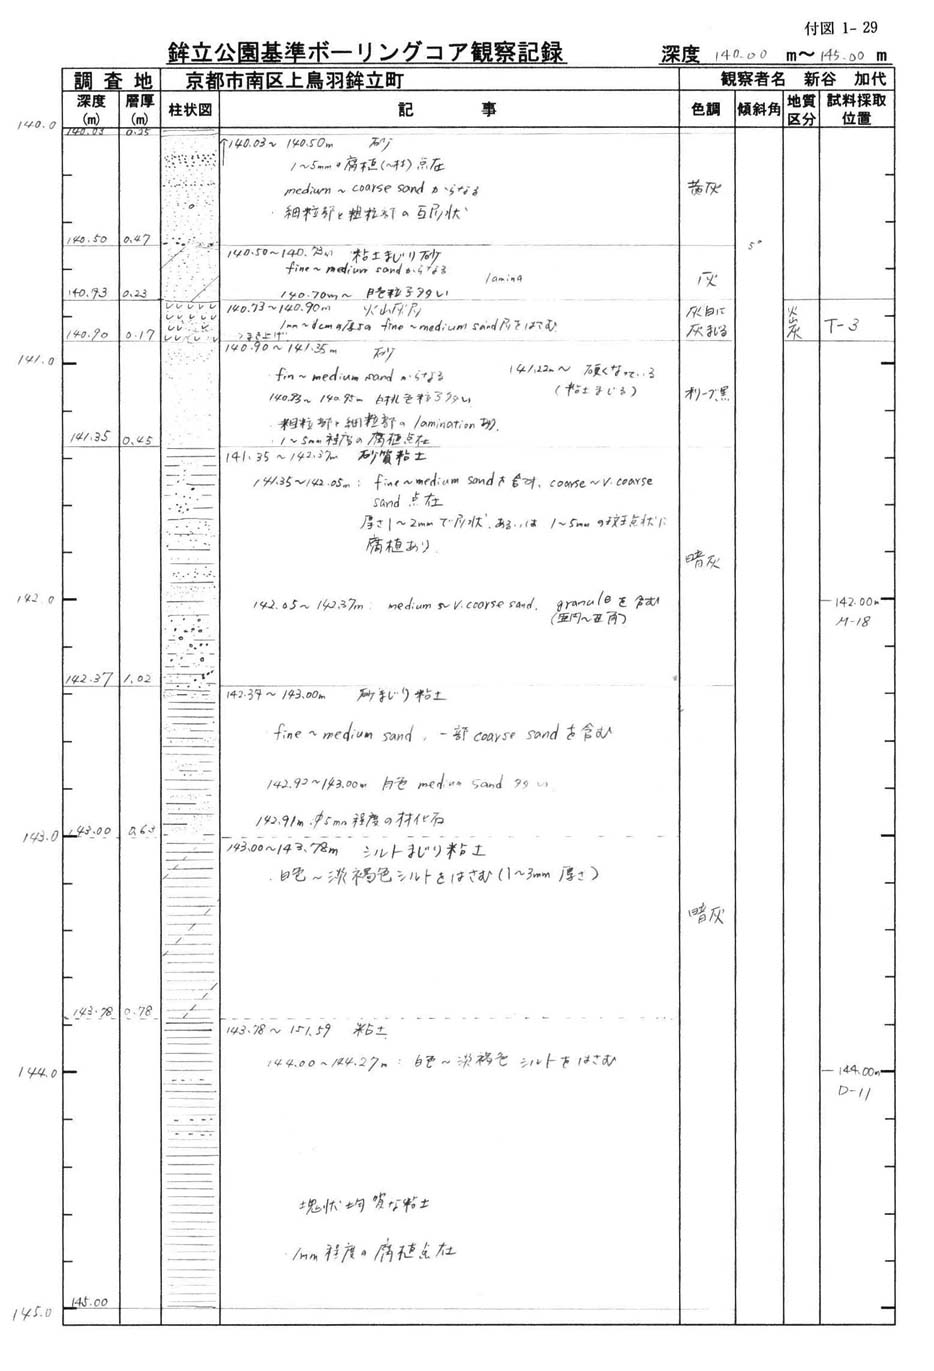 付図 1- 29
鉾立公園基準ボーリングコア観察記録
深度 140.00 m～145.00 m
調査地 京都市南区上鳥羽鉾立町 観察者名 新谷 加代
深度(m) 層厚(m) 柱状図 記事 色調 傾斜角 地質区分 試料採取位置
140.0
140.03 0.25
140.03～140.50m 砂
1～5mmの腐植(～材)点在
medium～coarse sandからなる
・細粒部と粗粒部の互層状
黄灰
140.50 0.47
5°
140.50～140.73m 粘土まじり砂
fine～medium sandからなる
lamina
灰
140.70m～ 白色粒子多い
140.93 0.23
140.73～140.90m 火山灰層
1mm～dcmの厚さの fine～medium sand層をはさむ
つまき上げ
灰白に
灰まじる
火山灰
T-3
140.90 0.17
140.90～141.35m 砂
141.0
fin～medium sandからなる
141.22m～ 硬くなっている
(粘土まじる)
140.93～140.95m 白色粒子多い
オリーブ黒
粗粒部と細粒部のlaminationあり.
・1～5mm程度の腐植点在
141.35 0.45
141.35～142.37m 砂質粘土
141.35～142.05m: fine～medium sandを含む, coarse～v.coarse
sand点在
厚さ1～2mmで層状, あるいは 1～5mmの斑点状に
腐植あり
暗灰
142.0
142.05～142.37m: medium～v.coarse sand, granuleを含む
(亜円～亜角)
142.00m
M-18
142.37 1.02
142.37～143.00m 砂まじり粘土
fine～medium sand, 一部coarse sandを含む
142.92～143.00m 白色 medium sand 多い
142.91m, φ5mm程度の材化石
143.0
143.00 0.63
143.00～143.78m シルトまじり粘土
・白色～淡褐色シルトをはさむ(1～3mm厚さ)
暗灰
143.78 0.78
143.78～151.59 粘土
144.00～144.27m: 白色～淡褐色 シルトをはさむ
144.0
144.00m
D-11
塊状均質な粘土
・1mm程度の腐植点在
145.00
145.0